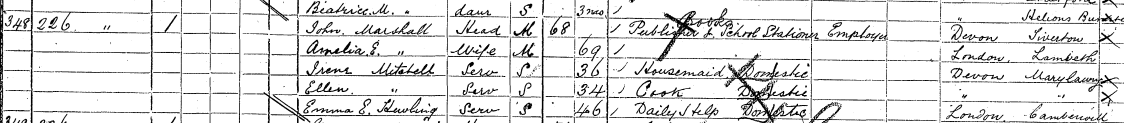 Beatrice M. " daur S 3mo /
348 226 " / John Marshall Head M 68 / Publisher & School Books Stationer Employer Devon Tiverton
Amelia E. " Wife M 69 / London, Lambeth
Irene Mitchell Serv S 36 / Housemaid Domestic Devon Marytavy
Ellen. " Serv S 34 / Cook Domestic " "
Emma E. Hewling Serv S 46 / Daily Help Domestic London, Camberwell